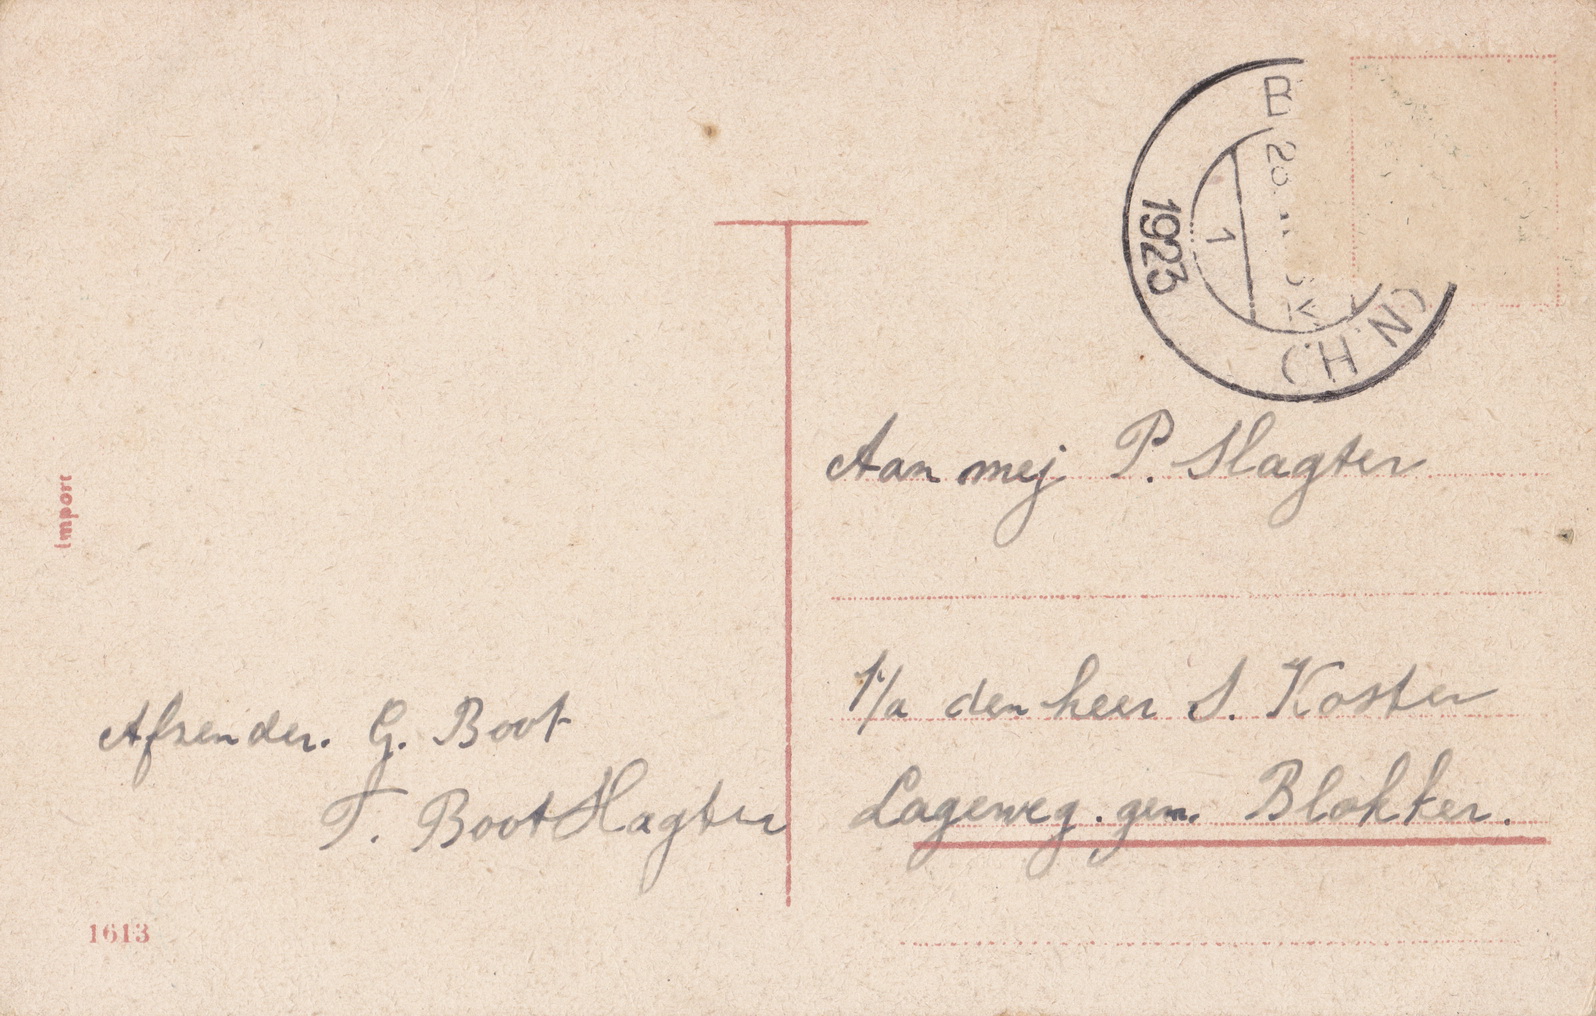 1923
1
Aan mej P. Slagter
p/a den heer S. Koster
Lageweg. gem. Blokker.
Afzender. G. Boot
T. Boot Slagter
Import
1613